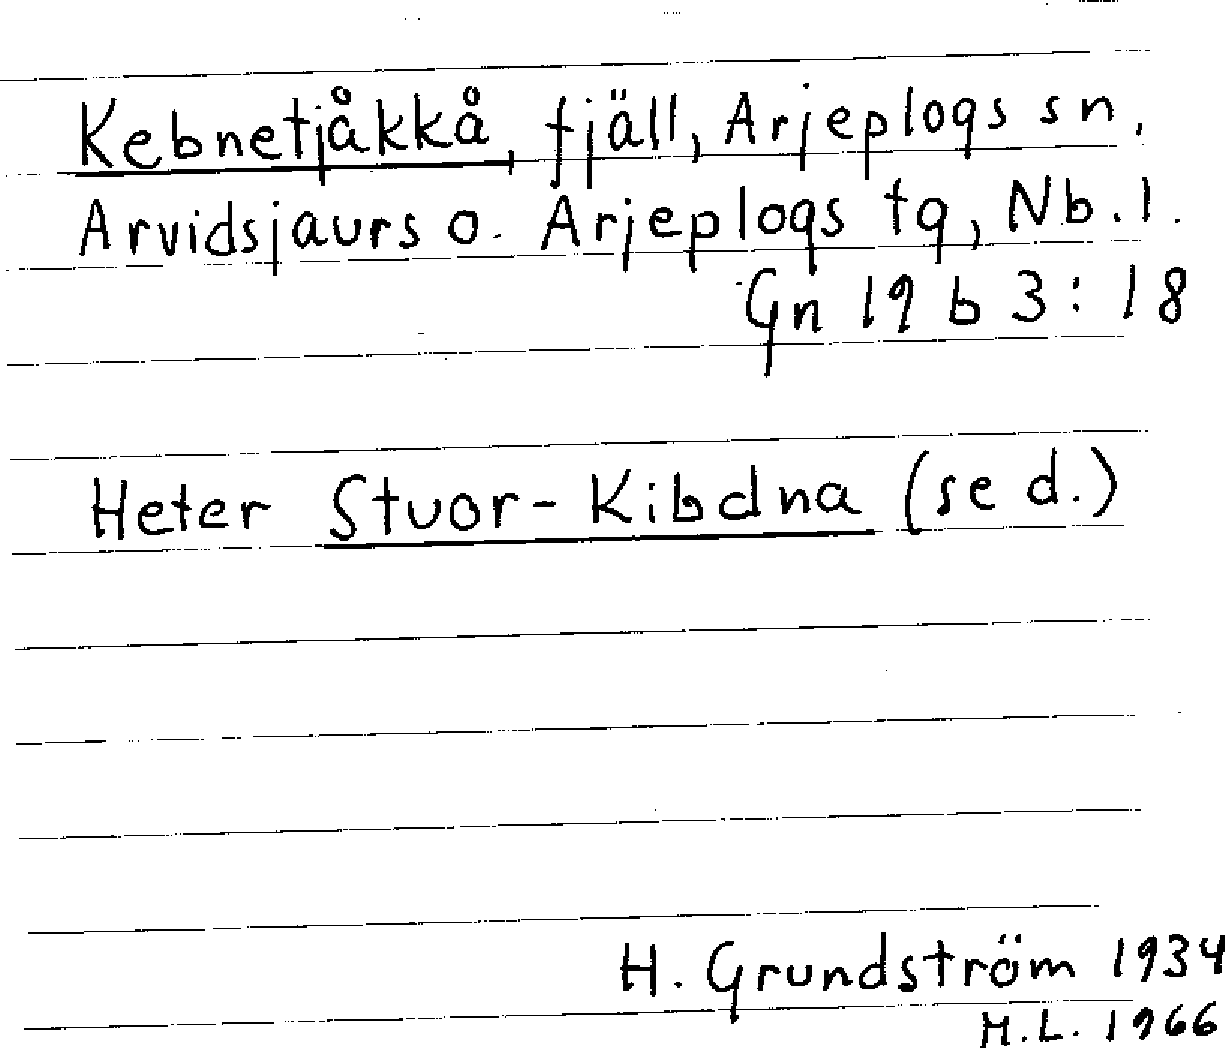 Kebnetjåkkå, fjäll, Arjeplogs sn,
Arvidsjaurs o. Arjeplogs tg, Nb.l.
Gn 19 b 3:18
Heter Stuor-Kibdna (se d.)
H. Grundström 1934
H.L. 1966